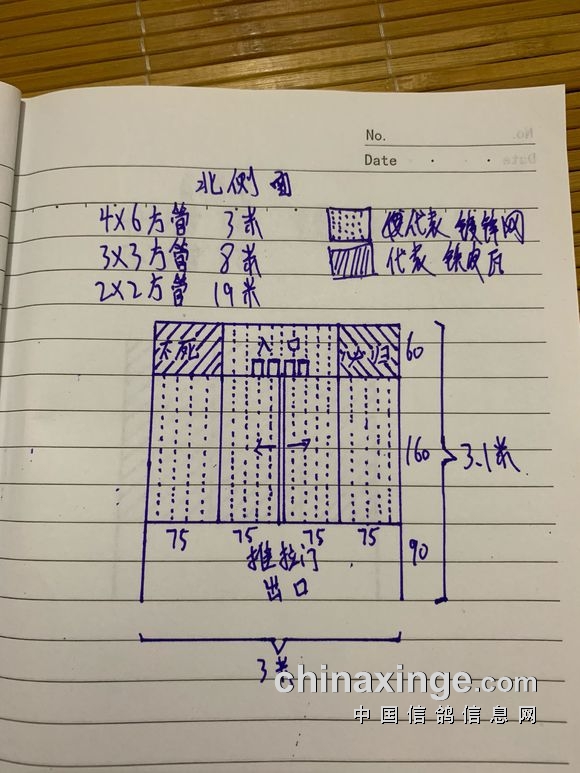 No.
Date
北侧面
4×6方管 3米
3×3方管 8米
2×2方管 19米
代表 镀锌网
代表 铁皮瓦
不死
入口
必归
60
160
3.1米
75 75 75 75
90
推拉门
出口
3米
chinaxinge.com
中国信鸽信息网